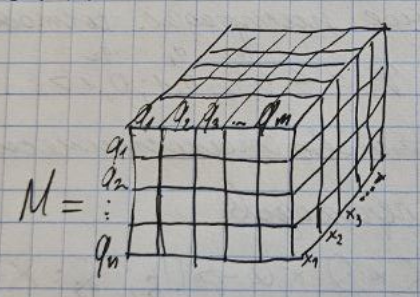 q1 q2 q3 ... qm
q1
q2
M = :
qn
x1 x2 x3 ...